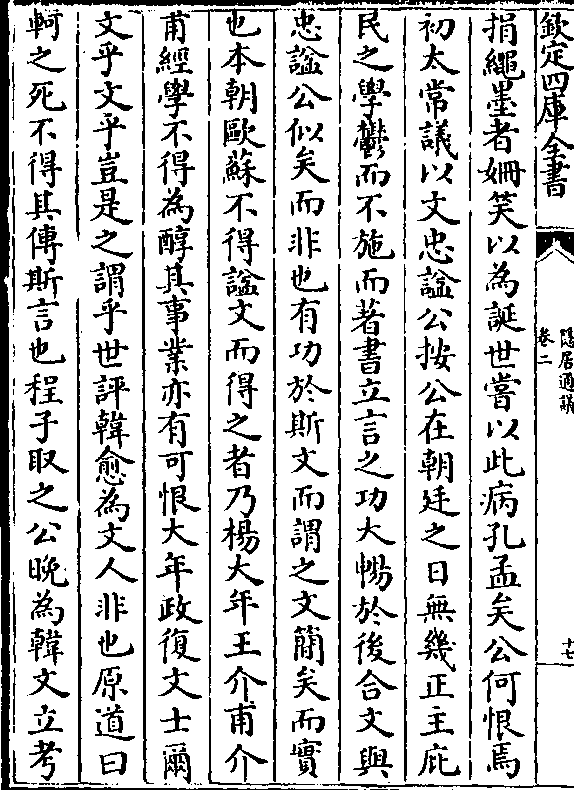 欽定四庫全書
隱居通議
卷二
十七
捐繩墨者姍笑以為誕世嘗以此病孔孟矣公何恨焉
初太常議以文忠諡公按公在朝廷之日無幾正主庇
民之學鬱而不施而著書立言之功大暢於後合文與
忠諡公似矣而非也有功於斯文而謂之文簡矣而實
也本朝歐蘇不得諡文而得之者乃楊大年王介甫介
甫經學不得為醇其事業亦有可恨大年政復文士爾
文乎文乎豈是之謂乎世評韓愈為文人非也原道曰
軻之死不得其傳斯言也程子取之公晚為韓文立考